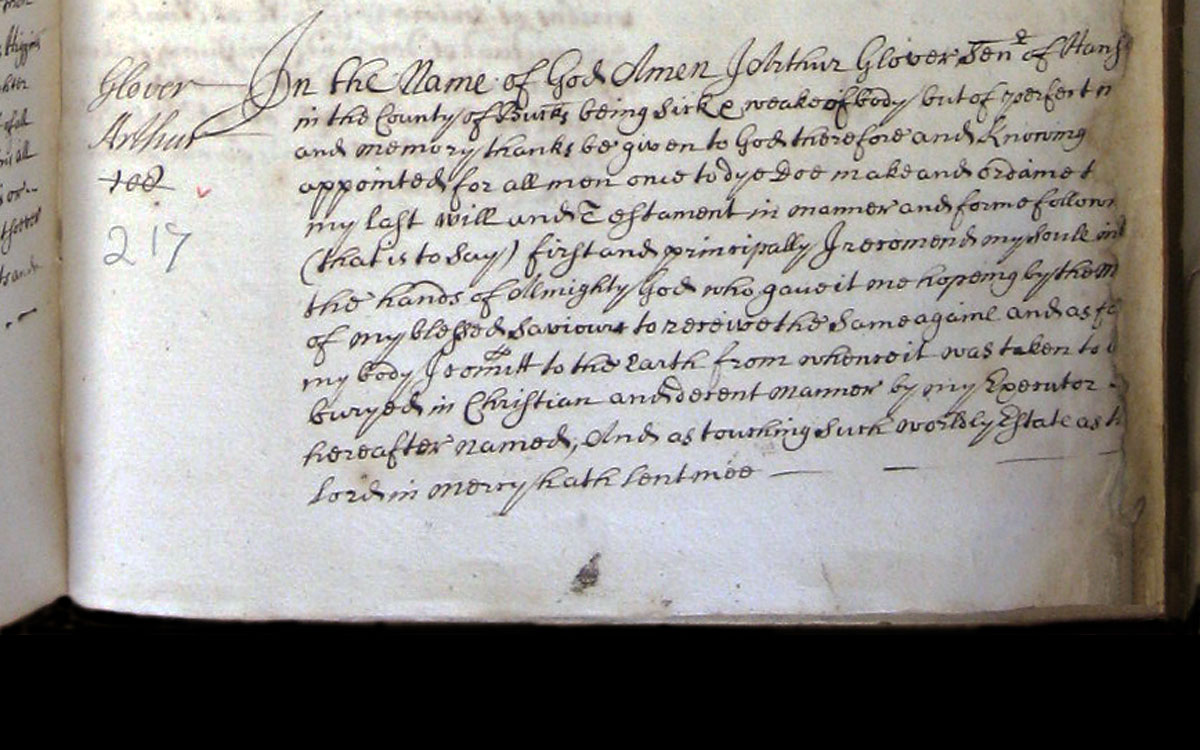 Glover
Arthur
217
In the Name of God Amen I Arthur Glover Senr of Hans
in the County of Bucks being Sick & weake of body but of perfect
and memory thanks be given to God therefore and Knowing
appointed for all men once to dye Doe make and ordaine t
my last will and Testament in manner and forme follow
(that is to Say) first and principally I recomend my soull int
the hands of Almighty God who gave it me hopeing by the M
of my blessed Saviour to receive the Same againe and as fo
my body I comitt to the Earth from whence it was taken to
buryed in Christian and decent manner by my Executor
hereafter named, And as touching Such worldly Estate as
Lord in mercy hath lent mee